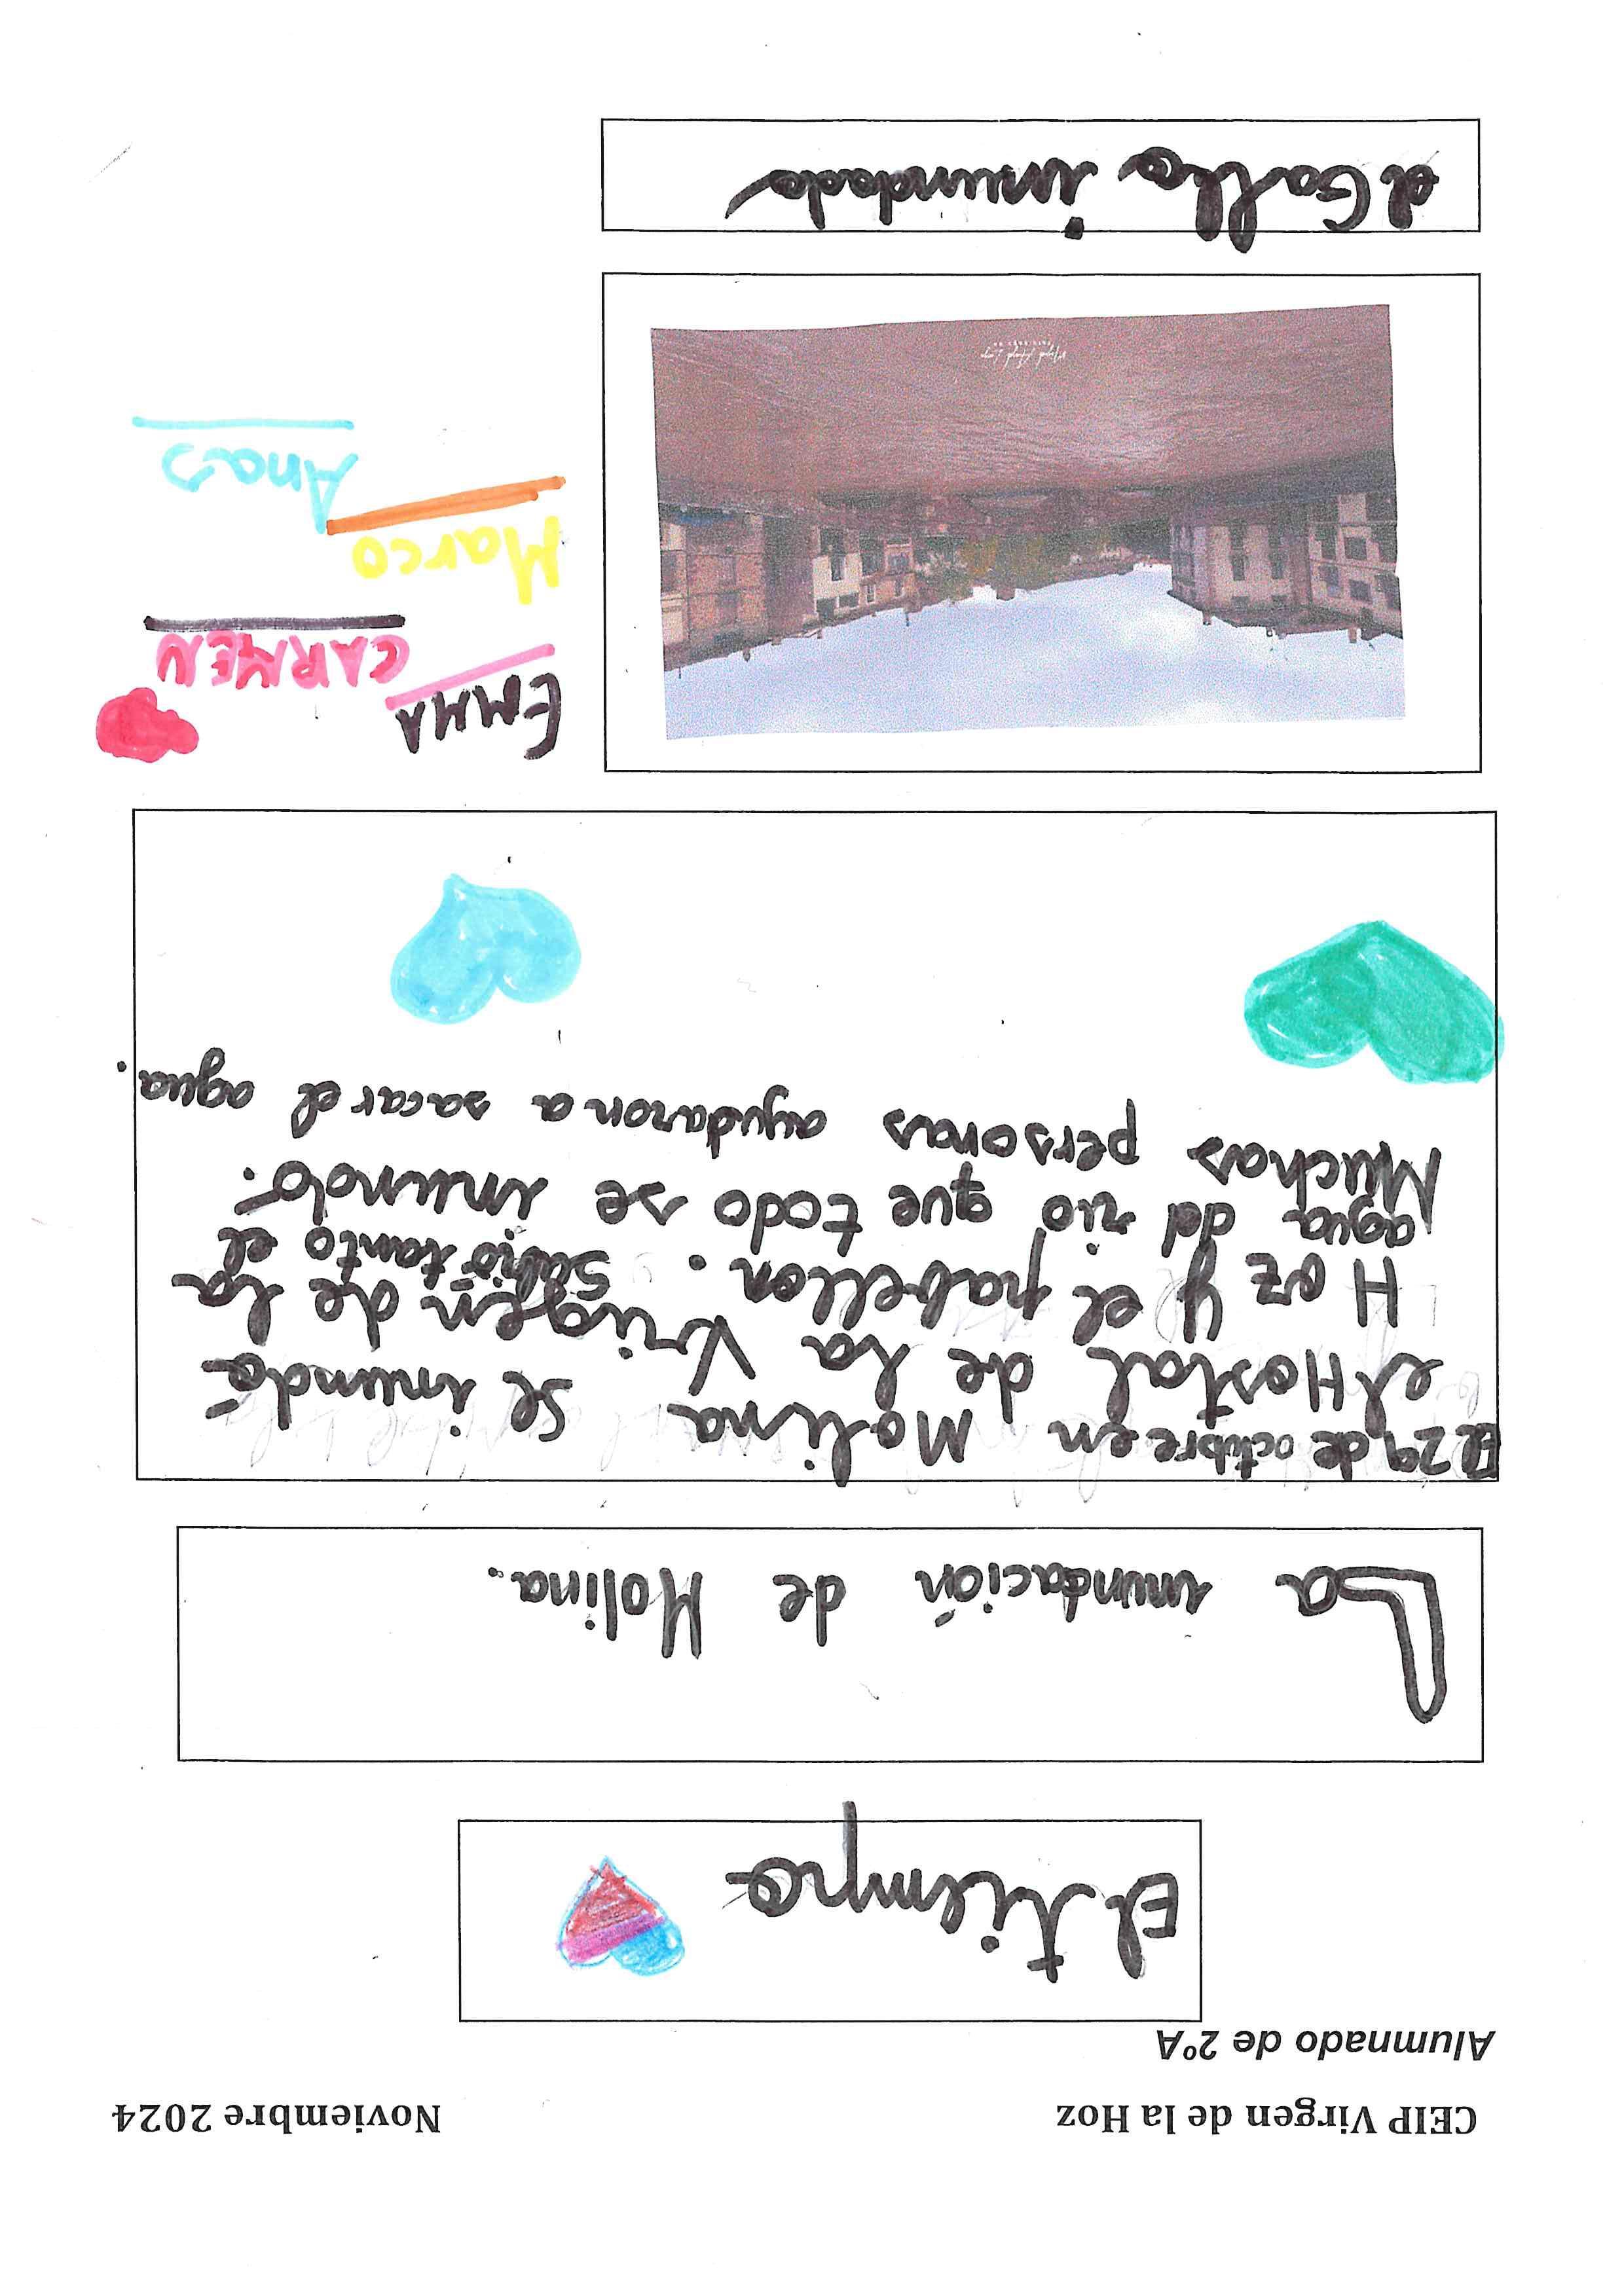 CEIP Virgen de la Hoz
Noviembre 2024
Alumnado de 2ºA
El tiempo
La inundación de Molina.
El 29 de octubre en Molina se inundó
el Hostal de la Vriogen de la
Hoz y el pabellon. Subio tanto el
agua del rio que todo se inundo.
Muchas personas ayudaron a sacar el agua.
EMMA
CARMEN
Marco
Anas
el Gallo inundado